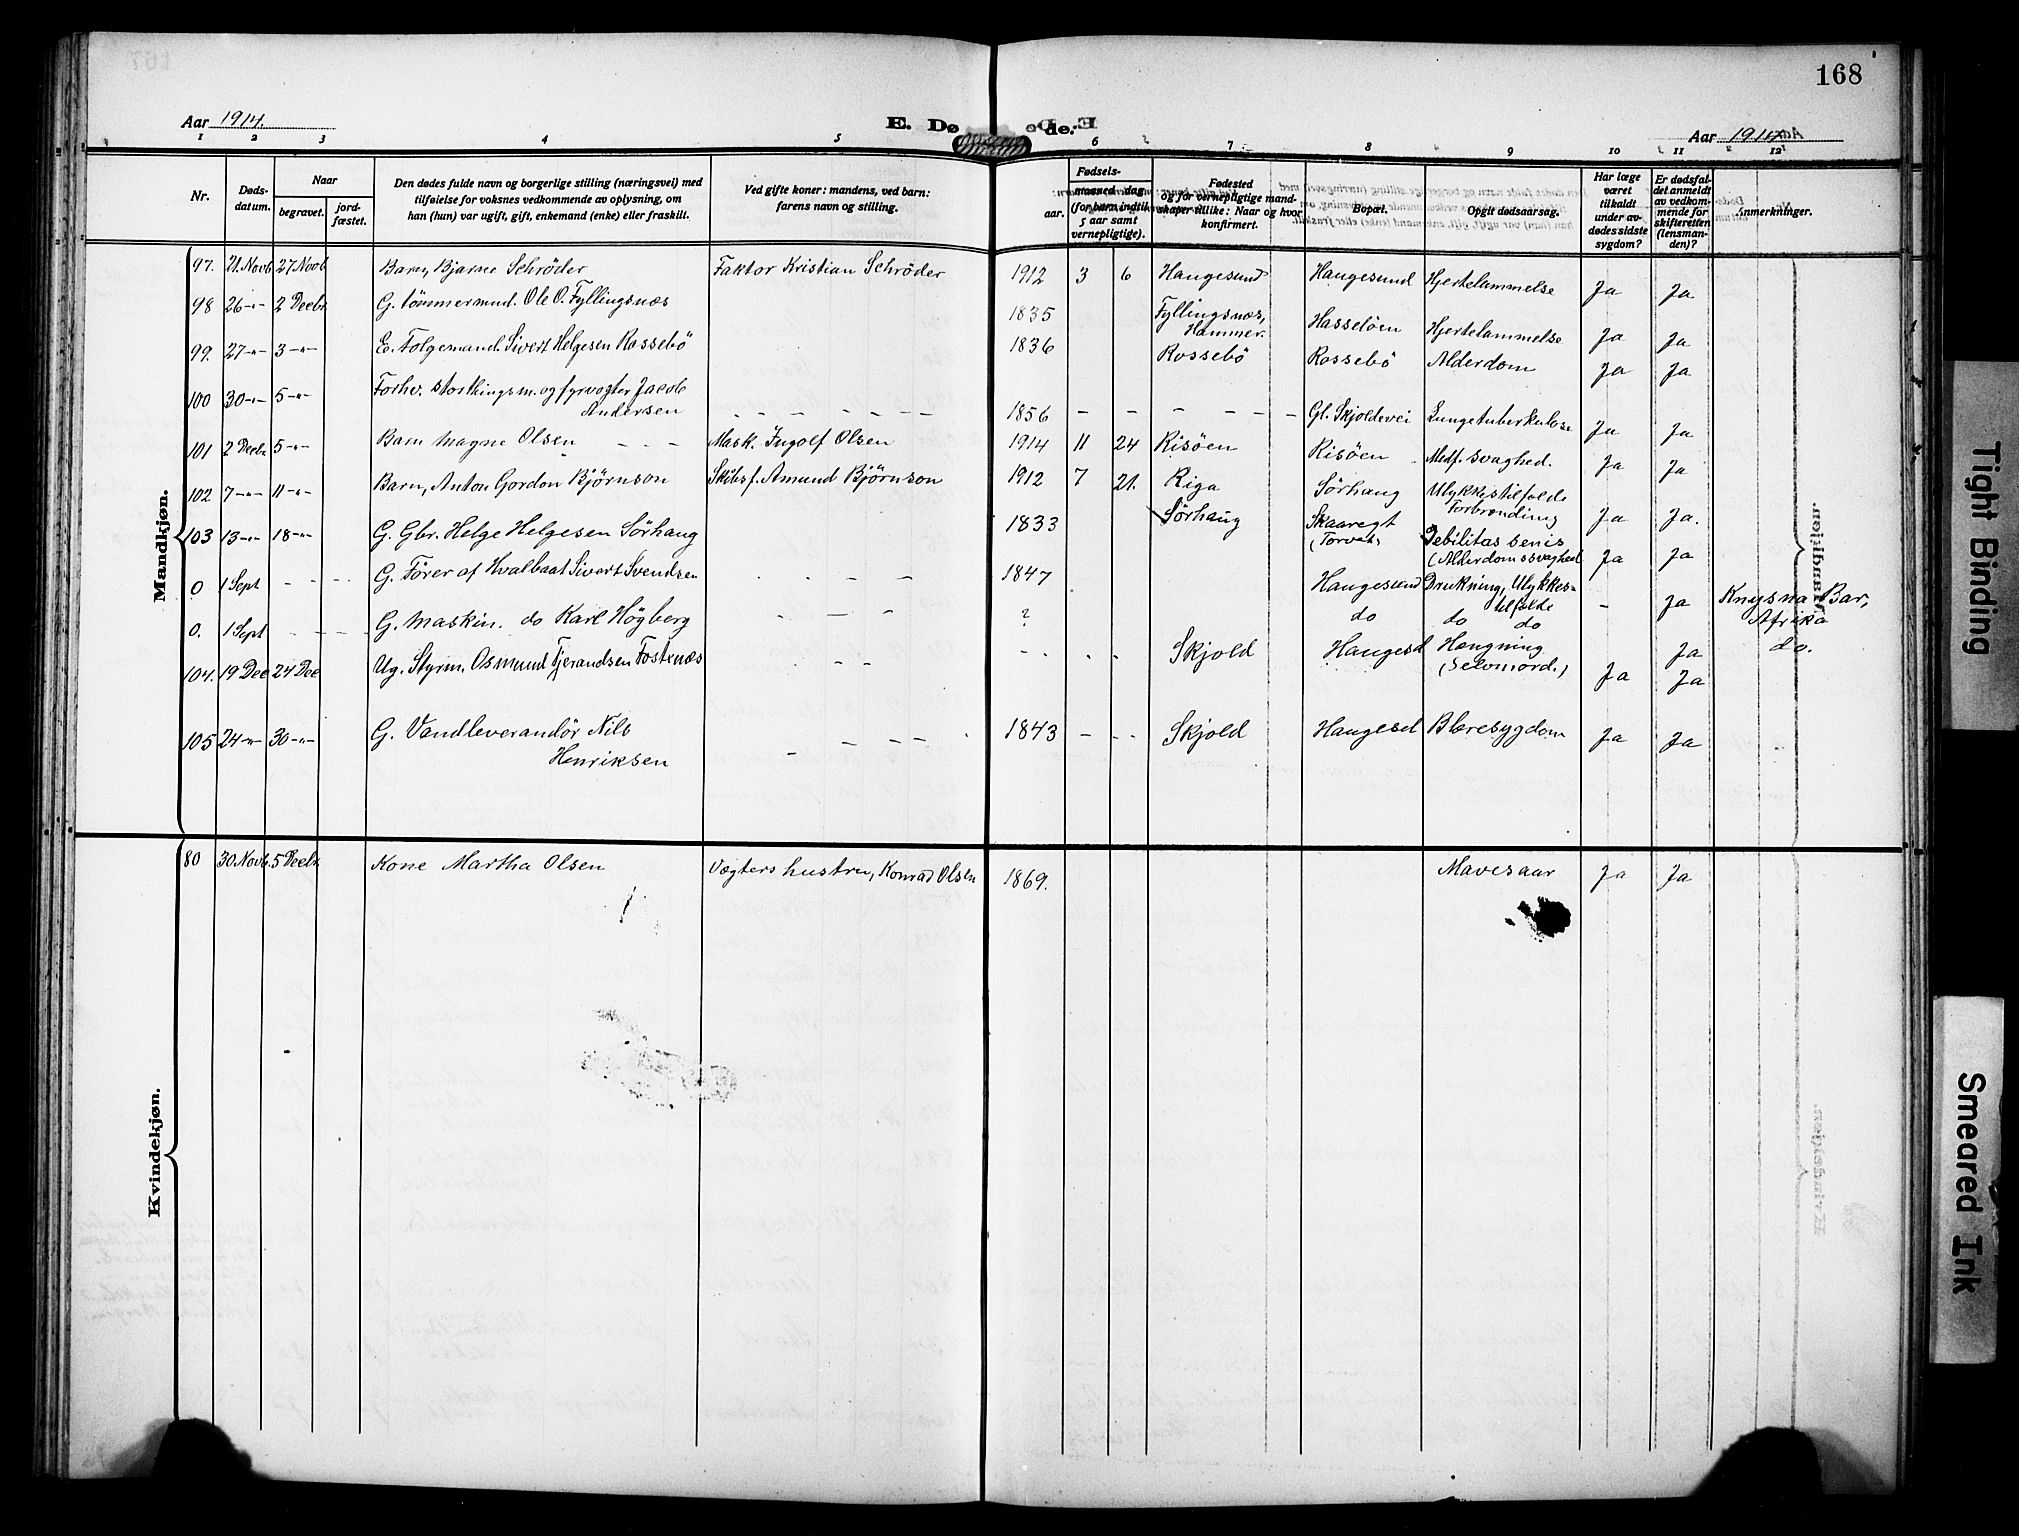 168
Aar 1914.
E. Dø
de.
Aar 1914
1 2 3 4 5 6 7 8 9 10 11 12
Nr.
Døds-
datum.
Naar
begravet.
jord-
fæstet.
Den dødes fulde navn og borgerlige stilling (næringsvei) med
tilføielse for voksnes vedkommende av oplysning, om
han (hun) var ugift, gift, enkemand (enke) eller fraskilt.
Ved gifte koner: mandens, ved barn:
farens navn og stilling.
Fødsels-
aar.
maaned dag
(for barn indtil
5 aar samt
vernepligtige).
Fødested
og for vernepligtige mand-
skaper tillike: Naar og hvor
konfirmert.
Bopæl.
Opgit dødsaarsag.
Har læge
været
tilkaldt
under av-
dødes sidste
sygdom?
Er dødsfal-
det anmeldt
av vedkom-
mende for
skifteretten
(lensman-
den)?
Anmerkninger.
Mandkjøn.
97. 21. Novb 27 Novb Barn, Bjarne Schröder Faktor Kristian Schröder 1912 3 6 Haugesund Haugesund Hjertelammelse Ja Ja
98 26 -"- 2 Decbr G. tömmermnd. Ole O. Fyllingsnæs 1835 Fyllingsnæs, Hammer. Hasselöen Hjertelammelse Ja Ja
99. 27 -"- 3 -"- E. Folgemand. Sivert Helgesen Rossebö 1836 Rossebö Rossebö Alderdom Ja Ja
100 30 -"- 5 -"- Forhv. storthingsm. og fyrvogter Jacob
Andersen 1856 Gl. Skjoldevei Lungetuberkulose Ja Ja
101 2 Decbr 5 -"- Barn Magne Olsen Mask. Ingolf Olsen 1914 11 24 Risöen Risöen Medf. svaghed. Ja Ja
102 7 -"- 11 -"- Barn, Anton Gordon Björnson Skibsf. Amund Björnson 1912 7 21. Riga Sörhaug Ulykkestilfælde
Forbrænding Ja Ja.
103 13 -"- 18 -"- G. Gbr. Helge Helgesen Sörhaug 1833 Sörhaug Skaaregt
(Torvet) Debilitas senis
(Alderdomssvaghed Ja Ja
0 1 Sept G. Förer af Hvalbaat Sivert Svendsen 1847 Haugesund Drukning, Ulykkes-
tilfælde - Ja Knysna Bar,
Afrika
0. 1 Sept G. Maskin. do Karl Högberg ? do do do Ja do.
104. 19 Dec 24 Dec Ug. Styrm. Osmund Tjerandsen Fostenæs Skjold Haugesd Hængning
(Selvmord.) Ja Ja
105 24 -"- 30 -"- G. Vandleverandör Nils
Henriksen 1843 Skjold Haugesd Blæresygdom Ja Ja
Kvindekjøn.
80 30 Novb. 5 Decbr Kone Martha Olsen Vægters hustru, Konrad Olsen 1869. Mavesaar Ja Ja
Tight Binding
Smeared Ink